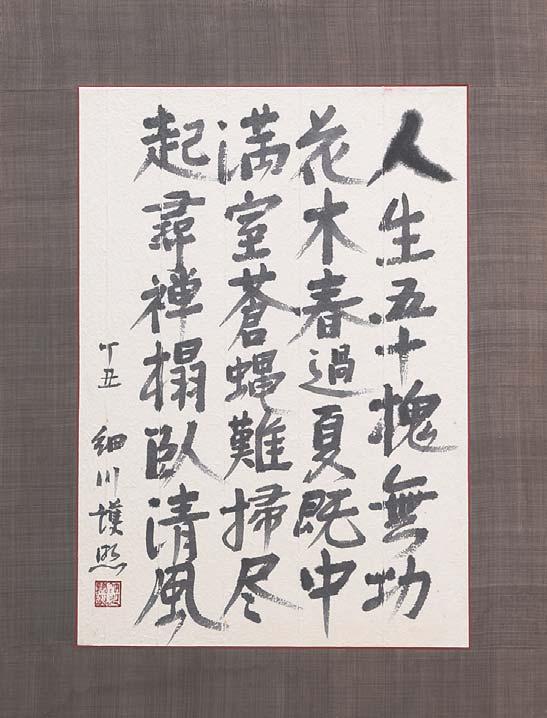 人生五十愧無功
花木春過夏既中
満室蒼蝿難掃尽
起尋禅榻臥清風
丁丑 細川護熙